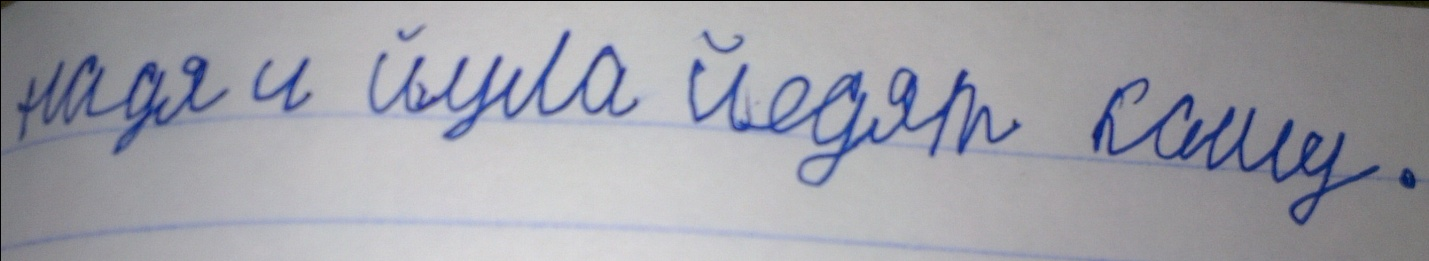 надя и йула йедят кашу.